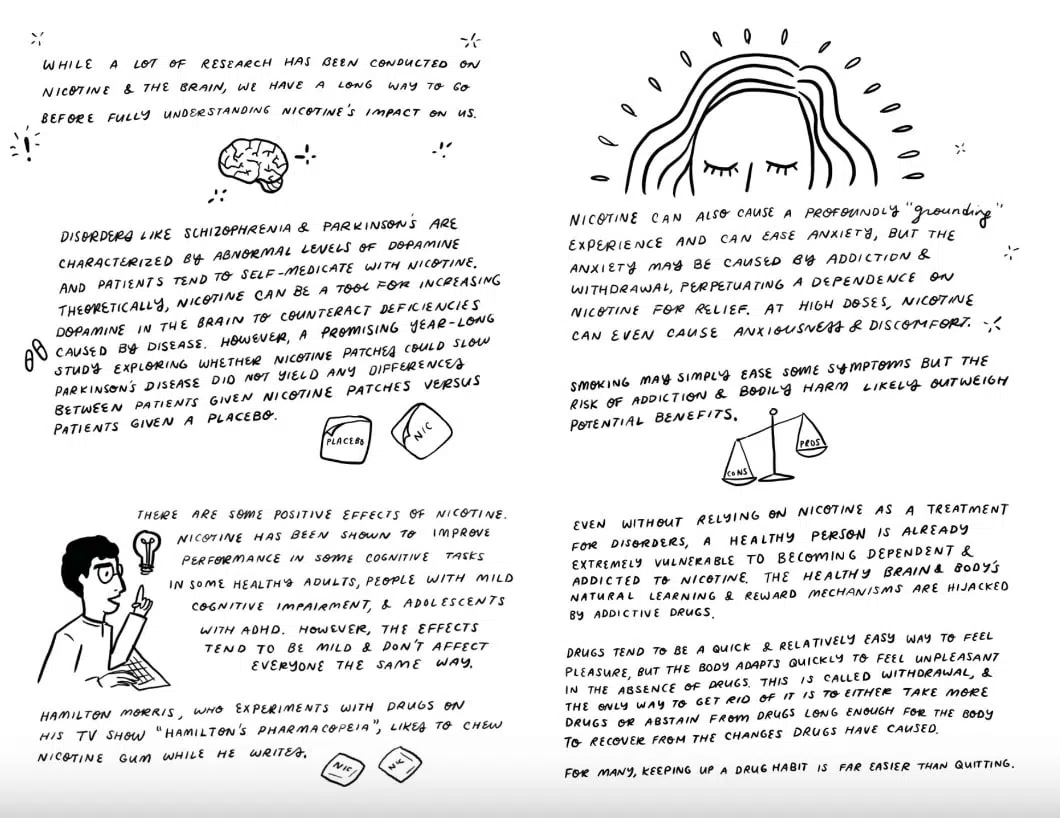 WHILE A LOT OF RESEARCH HAS BEEN CONDUCTED ON
NICOTINE & THE BRAIN, WE HAVE A LONG WAY TO GO
BEFORE FULLY UNDERSTANDING NICOTINE'S IMPACT ON US.
DISORDERS LIKE SCHIZOPHRENIA & PARKINSON'S ARE
CHARACTERIZED BY ABNORMAL LEVELS OF DOPAMINE
AND PATIENTS TEND TO SELF-MEDICATE WITH NICOTINE.
THEORETICALLY, NICOTINE CAN BE A TOOL FOR INCREASING
DOPAMINE IN THE BRAIN TO COUNTERACT DEFICIENCIES
CAUSED BY DISEASE. HOWEVER, A PROMISING YEAR-LONG
STUDY EXPLORING WHETHER NICOTINE PATCHES COULD SLOW
PARKINSON'S DISEASE DID NOT YIELD ANY DIFFERENCES
BETWEEN PATIENTS GIVEN NICOTINE PATCHES VERSUS
PATIENTS GIVEN A PLACEBO.
PLACEBO
NIC
THERE ARE SOME POSITIVE EFFECTS OF NICOTINE.
NICOTINE HAS BEEN SHOWN TO IMPROVE
PERFORMANCE IN SOME COGNITIVE TASKS
IN SOME HEALTHY ADULTS, PEOPLE WITH MILD
COGNITIVE IMPAIRMENT, & ADOLESCENTS
WITH ADHD. HOWEVER, THE EFFECTS
TEND TO BE MILD & DON'T AFFECT
EVERYONE THE SAME WAY.
HAMILTON MORRIS, WHO EXPERIMENTS WITH DRUGS ON
HIS TV SHOW "HAMILTON'S PHARMACOPEIA", LIKES TO CHEW
NICOTINE GUM WHILE HE WRITES.
NIC
NIC
NICOTINE CAN ALSO CAUSE A PROFOUNDLY "grounding"
EXPERIENCE AND CAN EASE ANXIETY, BUT THE
ANXIETY MAY BE CAUSED BY ADDICTION &
WITHDRAWAL, PERPETUATING A DEPENDENCE ON
NICOTINE FOR RELIEF. AT HIGH DOSES, NICOTINE
CAN EVEN CAUSE ANXIOUSNESS & DISCOMFORT.
SMOKING MAY SIMPLY EASE SOME SYMPTOMS BUT THE
RISK OF ADDICTION & BODILY HARM LIKELY OUTWEIGH
POTENTIAL BENEFITS.
CONS
PROS
EVEN WITHOUT RELYING ON NICOTINE AS A TREATMENT
FOR DISORDERS, A HEALTHY PERSON IS ALREADY
EXTREMELY VULNERABLE TO BECOMING DEPENDENT &
ADDICTED TO NICOTINE. THE HEALTHY BRAIN & BODY'S
NATURAL LEARNING & REWARD MECHANISMS ARE HIJACKED
BY ADDICTIVE DRUGS.
DRUGS TEND TO BE A QUICK & RELATIVELY EASY WAY TO FEEL
PLEASURE, BUT THE BODY ADAPTS QUICKLY TO FEEL UNPLEASANT
IN THE ABSENCE OF DRUGS. THIS IS CALLED WITHDRAWAL, &
THE ONLY WAY TO GET RID OF IT IS TO EITHER TAKE MORE
DRUGS OR ABSTAIN FROM DRUGS LONG ENOUGH FOR THE BODY
TO RECOVER FROM THE CHANGES DRUGS HAVE CAUSED.
FOR MANY, KEEPING UP A DRUG HABIT IS FAR EASIER THAN QUITTING.